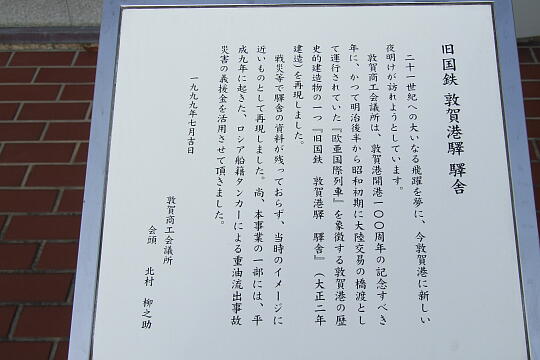 旧国鉄 敦賀港驛 驛舎
二十一世紀への大いなる飛躍を夢に、今敦賀港に新しい
夜明けが訪れようとしています。
敦賀商工会議所は、敦賀港開港一〇〇周年の記念すべき
年に、かつて明治後半から昭和初期に大陸交易の橋渡とし
て運行されていた『欧亜国際列車』を象徴する敦賀港の歴
史的建造物の一つ『旧国鉄 敦賀港驛 驛舎』（大正二年
建造）を再現しました。
戦災等で驛舎の資料が残っておらず、当時のイメージに
近いものとして再現しました。尚、本事業の一部には、平
成九年に起きた、ロシア船籍タンカーによる重油流出事故
災害の義援金を活用させて頂きました。
一九九九年七月吉日
敦賀商工会議所
会頭 北村 柳之助